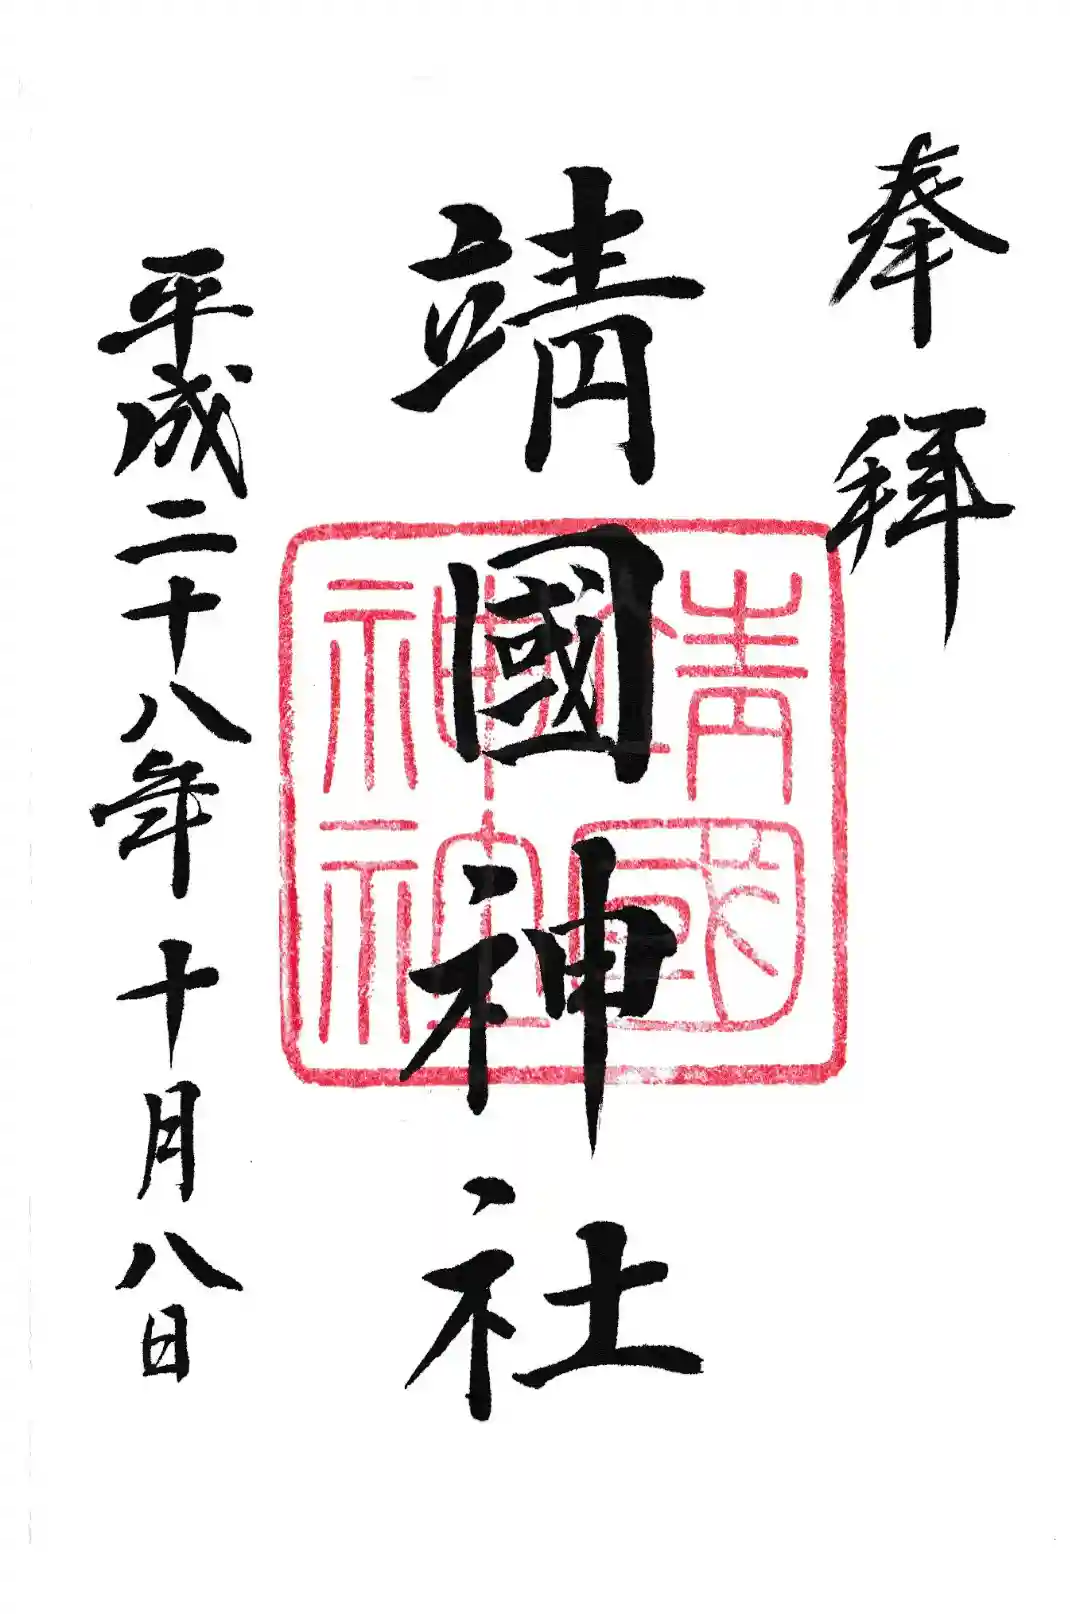 奉拜
靖國神社
靖國神社
平成二十八年十月八日